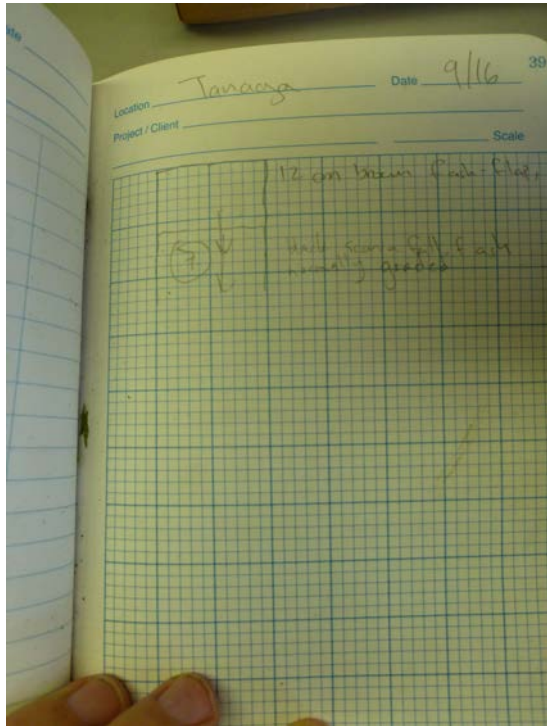 39
Location Tanaga Date 9/16
Project / Client
Scale
12 cm brown f ash
7
scoria fall f ash
normally graded